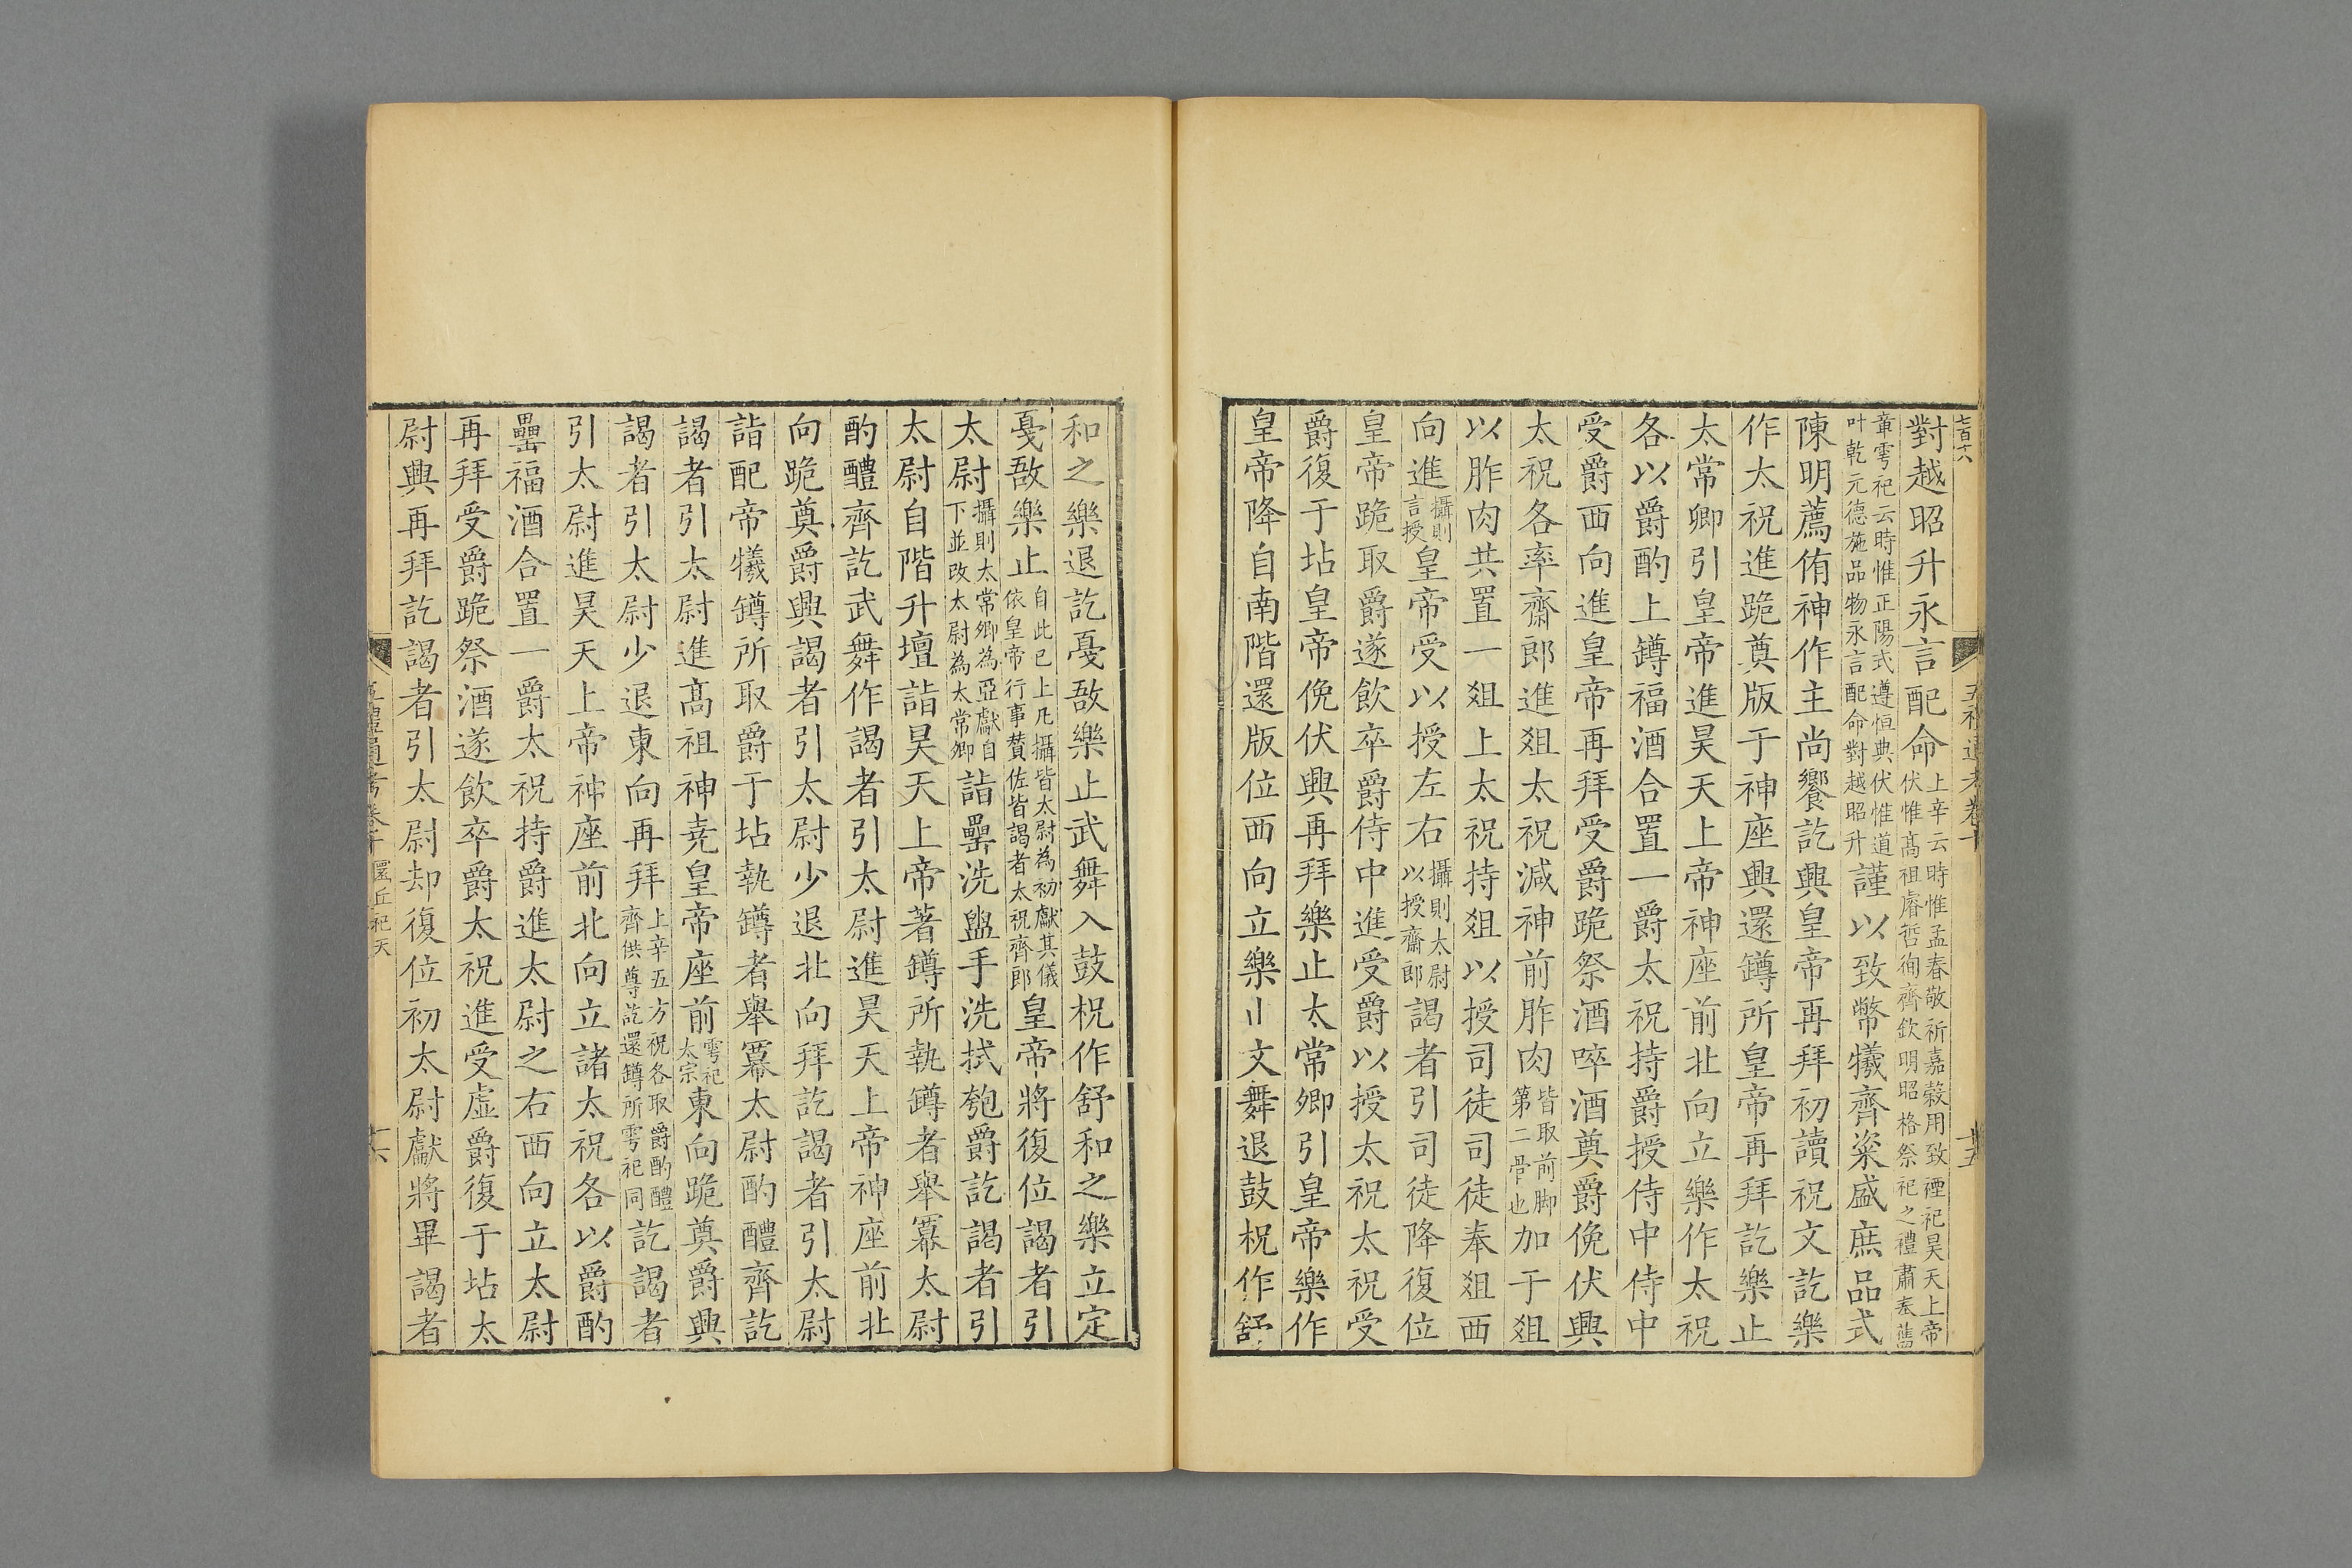 七百十六
五禮通考卷十
十五
對越昭升永言配命上辛云時惟孟春敬祈嘉穀用致禋祀昊天上帝伏惟高祖睿哲徇齊欽明昭格祭祀之禮肅奉舊
章雩祀云時惟正陽式遵恒典伏惟道叶乾元德施品物永言配命對越昭升謹以致幣犧齊粢盛庶品式
陳明薦侑神作主尚饗訖興皇帝再拜初讀祝文訖樂
作太祝進跪奠版于神座興還罇所皇帝再拜訖樂止
太常卿引皇帝進昊天上帝神座前北向立樂作太祝
各以爵酌上罇福酒合置一爵太祝持爵授侍中侍中
受爵西向進皇帝再拜受爵跪祭酒啐酒奠爵俛伏興
太祝各率齋郎進俎太祝減神前胙肉皆取前脚第二骨也加于俎
以胙肉共置一俎上太祝持俎以授司徒司徒奉俎西
向進攝則言授皇帝受以授左右攝則太尉以授齋郎謁者引司徒降復位
皇帝跪取爵遂飲卒爵侍中進受爵以授太祝太祝受
爵復于坫皇帝俛伏興再拜樂止太常卿引皇帝樂作
皇帝降自南階還版位西向立樂止文舞退鼓柷作舒
和之樂退訖戛敔樂止武舞入鼓柷作舒和之樂立定
戛敔樂止自此已上凡攝皆太尉為初獻其儀依皇帝行事贊佐皆謁者太祝齊郎皇帝將復位謁者引
太尉攝則太常卿為亞獻自下並改太尉為太常卿詣罍洗盥手洗拭匏爵訖謁者引
太尉自階升壇詣昊天上帝著罇所執罇者舉冪太尉
酌醴齊訖武舞作謁者引太尉進昊天上帝神座前北
向跪奠爵興謁者引太尉少退北向拜訖謁者引太尉
詣配帝犧罇所取爵于坫執罇者舉冪太尉酌醴齊訖
謁者引太尉進高祖神堯皇帝座前雩祀太宗東向跪奠爵興
謁者引太尉少退東向再拜上辛五方祝各取爵酌醴齊供尊訖還罇所雩祀同訖謁者
引太尉進昊天上帝神座前北向立諸太祝各以爵酌
罍福酒合置一爵太祝持爵進太尉之右西向立太尉
再拜受爵跪祭酒遂飲卒爵太祝進受虛爵復于坫太
尉興再拜訖謁者引太尉却復位初太尉獻將畢謁者
五禮通考卷十 圜丘祀天
十六